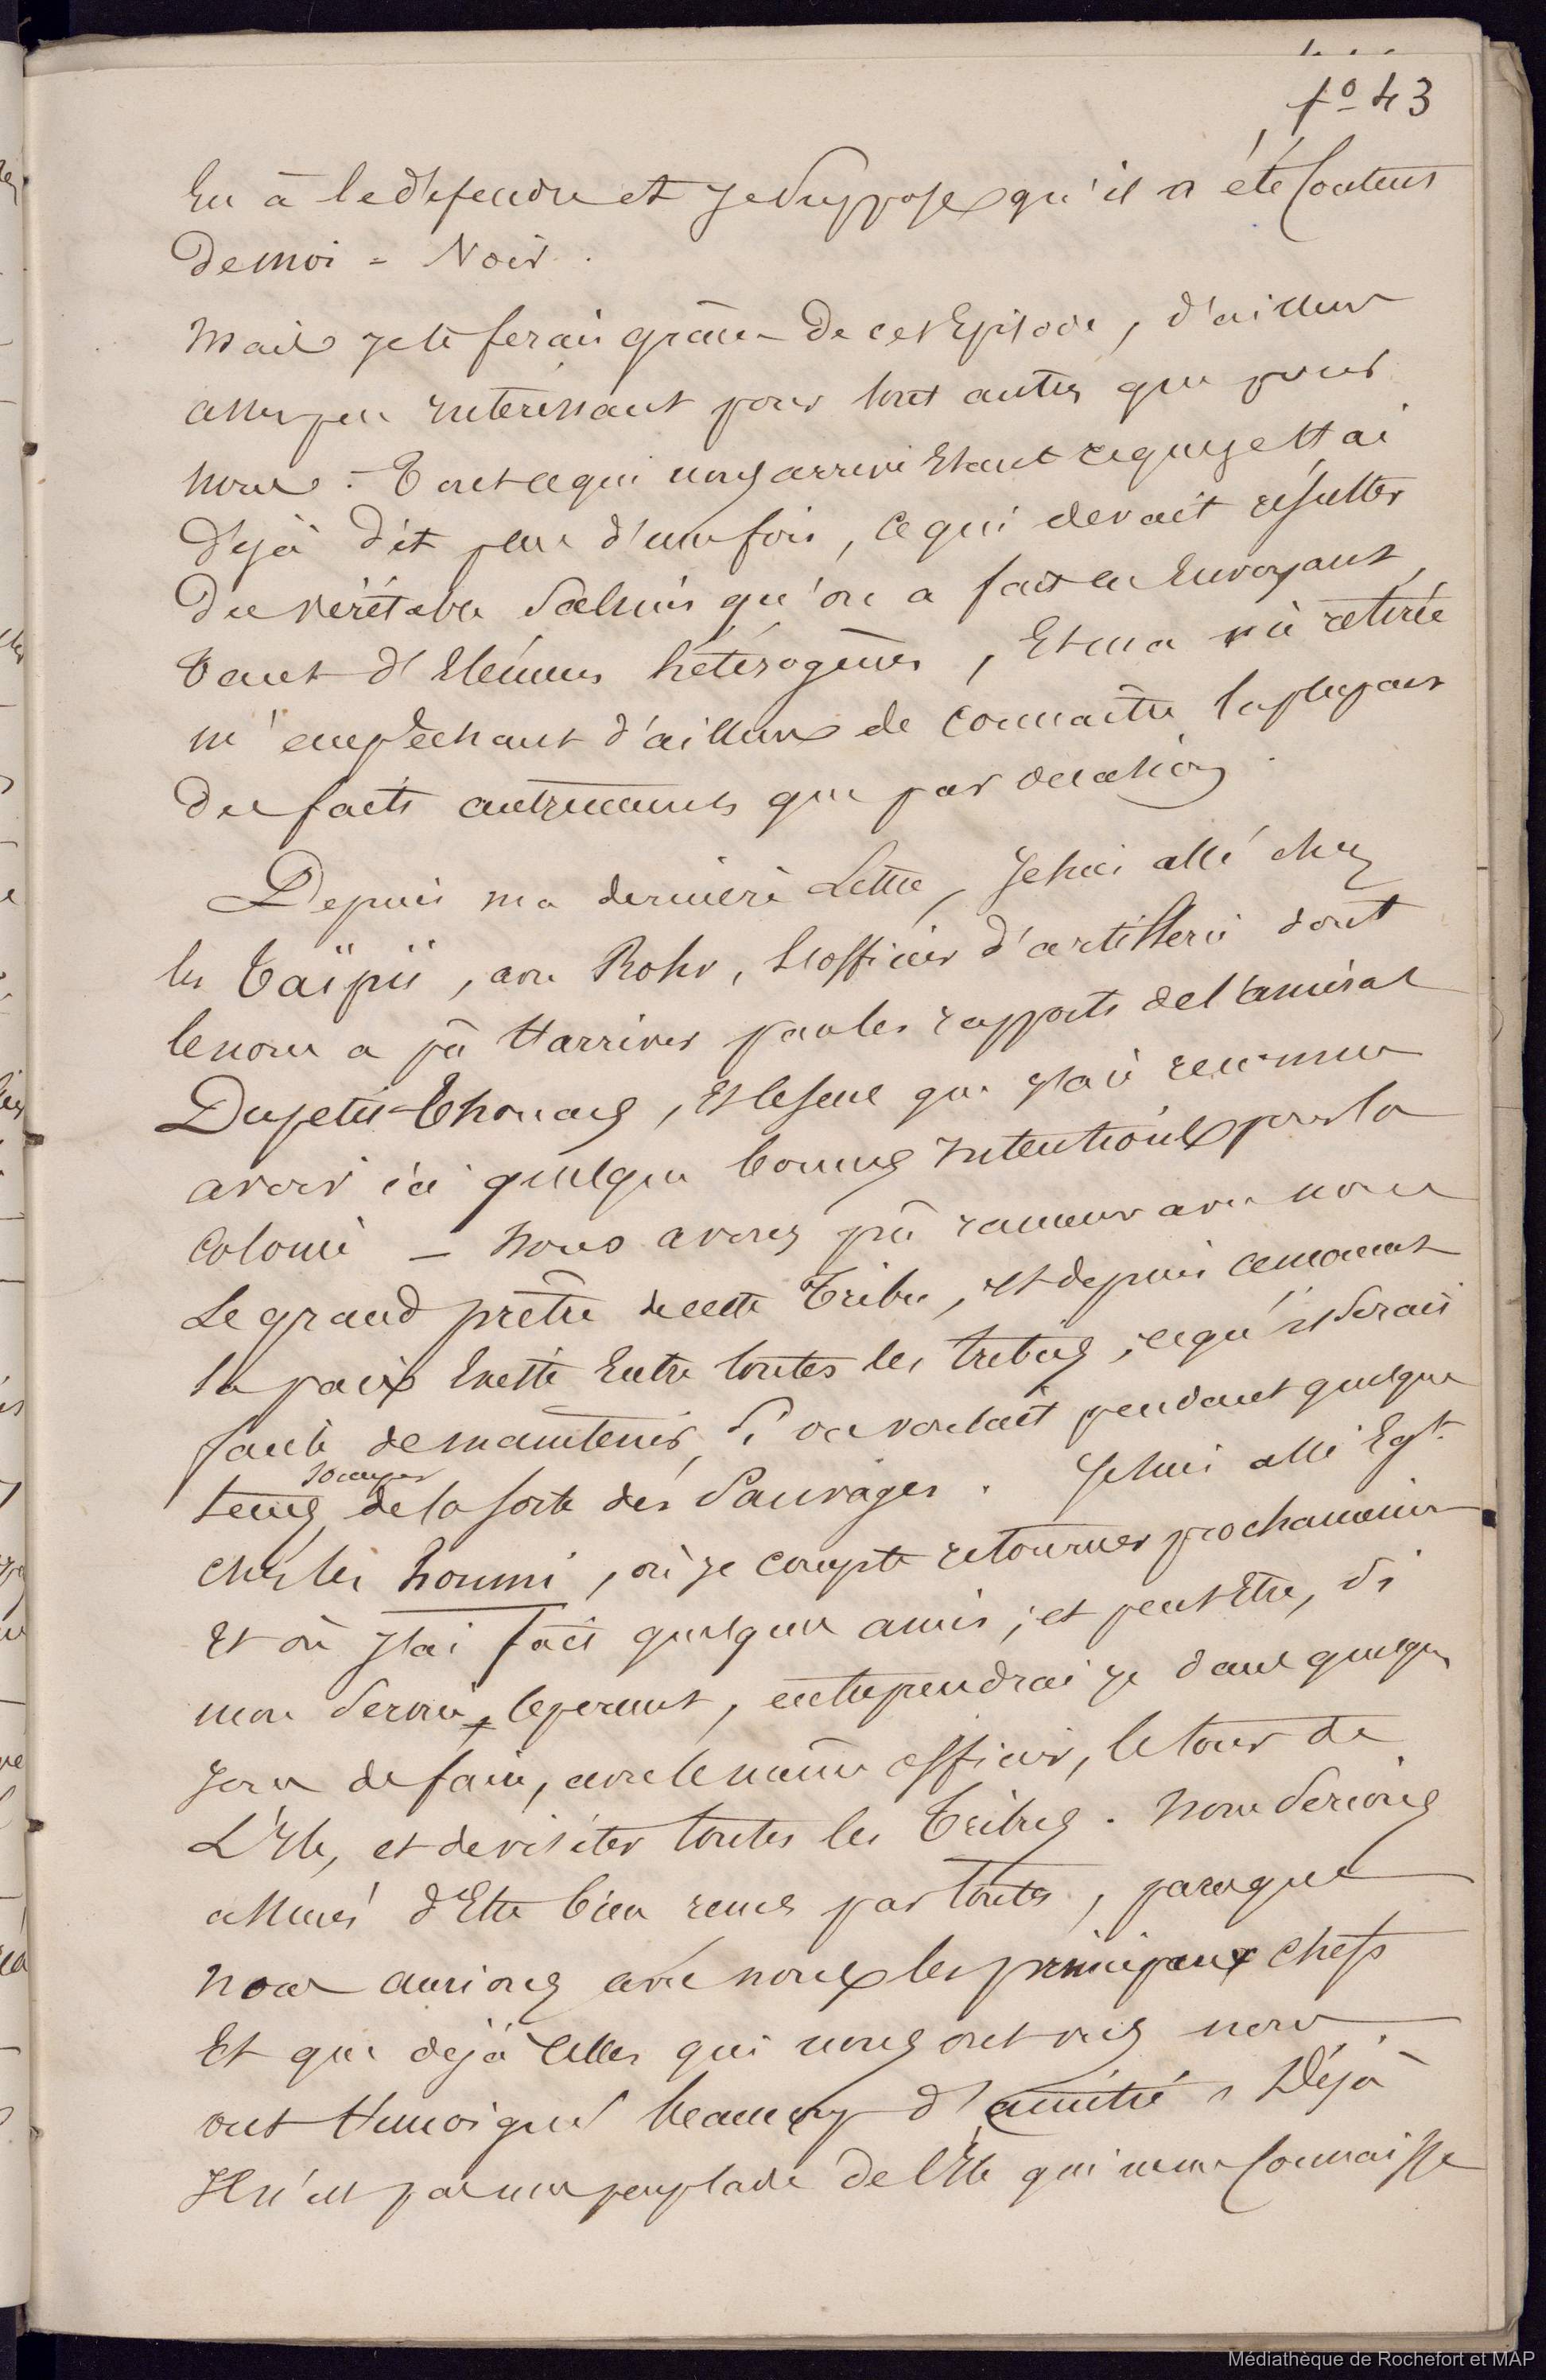 fº 43
Eu à le défendre et Je Suppose qu'il a été Content
De moi = Noir.
Mais Je te ferai grâce De cet Episode, d'ailleurs
assez peu interessant pour tout autres que pour
nous. - Tout ce qui nous arrive Etant ce que je t'ai
Déjà dit plus d'une fois, ce qui devait résulter
Du véritable Salmis qu'on a fait en Envoyant,
Tant d'Eléments hétérogènes, Et ma vie retirée
m'empêchant d'ailleurs de connaître la plupart
Des faits autrement que par
Depuis ma dernière Lettre, Je suis allé chez
les Taïpii, avec Rohr, l'officier d'artillerie dont
le nom a pû t'arriver par les rapports de l'amiral
Dupetit-Thouars, Et le seul que J'ai reconnu
avoir ici quelques bonnes intentions pour la
Colonie — Nous avons pû ramener avec nous
Le grand prêtre de cette Tribu, Et depuis ce moment
la paix Existe Entre toutes les tribus, ce qu'il serait
facile de maintenir, Si on voulait pendant quelque
s'occuper
tems de la sorte des Sauvages. Je suis allé Egt.
chez les houmi, où je compte retourner prochainement
Et où J'ai fait quelques amis; et peut Etre, si
mon Service le permet, entreprendrai je dans quelques
Jours de faire, avec le même officier, le tour de
L'Ile, et de visiter toutes les Tribus. Nous Serions
assurés d'Etre bien reçus par toutes, parceque
nous aurions avec nous les principaux chefs
Et que déjà Celles qui nous ont vus nous
ont témoigné beaucoup d'amitié. Déjà
Il n'est pas une peuplade de l'Ile qui ne me Connaisse
Médiathèque de Rochefort et MAP